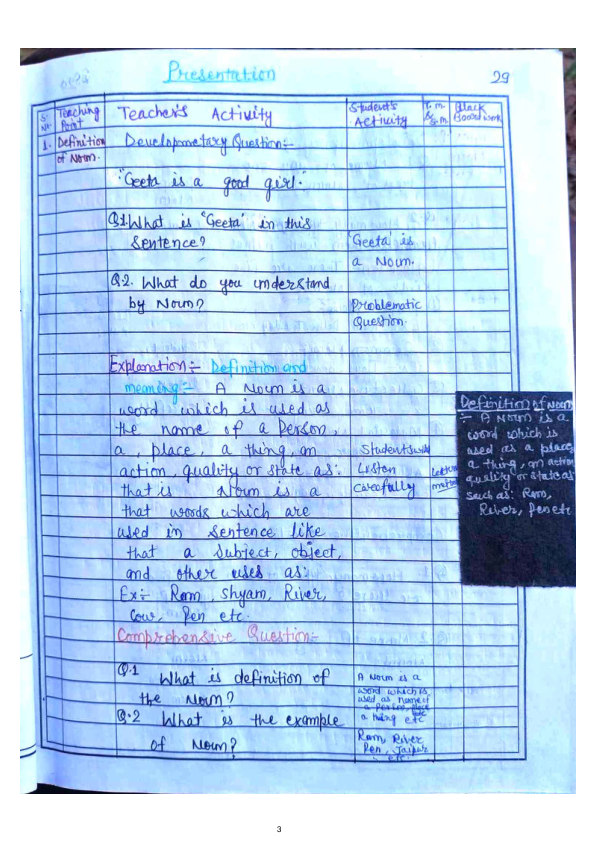 Presentation
29
S. No.
Teaching Point
Teacher's Activity
Student's Activity
T.M. & S.M.
Black board work
1. Definition of Noun.
Developmetary Question:-
"Geeta is a good girl."
Q.1 What is 'Geeta' in this
Sentence?
'Geeta' is
a Noun.
Q.2. What do you understand
by Noun?
Problematic
Question.
Explanation:- Definition and
meaning:- A Noun is a
word which is used as
the name of a Person,
a, place, a thing, an
action, quality or state as:
that is Noun is a
that words which are
used in Sentence like
that a subject, object,
and other uses as:
Ex:- Ram, Shyam, River,
Cow, Pen etc.
Students will
Listen
Carefully
Definition of Noun
:- A Noun is a
word which is
used as a place,
a thing, an action
quality or state as
such as: Ram,
River, Pen etc
Comprehensive Question:-
Q.1 What is definition of
the Noun?
A Noun is a
word which is
used as name of
a Person,
a thing etc
Q.2 What is the example
of Noun?
Ram, River
Pen, Jaipur
etc.
3